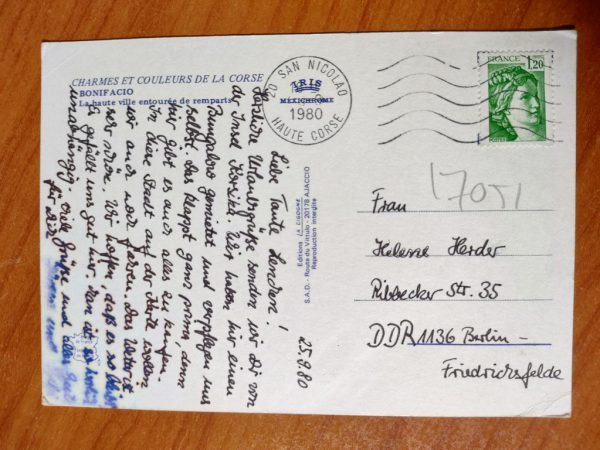 CHARMES ET COULEURS DE LA CORSE
BONIFACIO
La haute ville entourée de remparts
IRIS
MEXICHROME
20 SAN NICOLAO
1980
HAUTE CORSE
FRANCE
1,20
POSTES
25.9.80
Liebe Tante
Herzliche Urlaubsgrüße senden wir Dir von
der Insel Korsika. Wir haben hier einen
Bungalow gemietet und verpflegen uns
selbst. Das klappt ganz prima, denn
hier gibt es auch alles zu kaufen.
In diese Stadt auf der Karte wollen
wir auch noch fahren. Das Wetter ist
sehr schön. Wir hoffen, daß es so bleibt
Es gefällt uns gut hier. Man ist so
unabhängig. Viele Grüße und alles Gute
für Dich
Editions LA CIGOGNE
S.A.D. - Route du Vittulo - 20178 AJACCIO
Reproduction interdite
17051
Frau
Helene Herder
Ribbecker Str. 35
DDR 1136 Berlin-
Friedrichsfelde